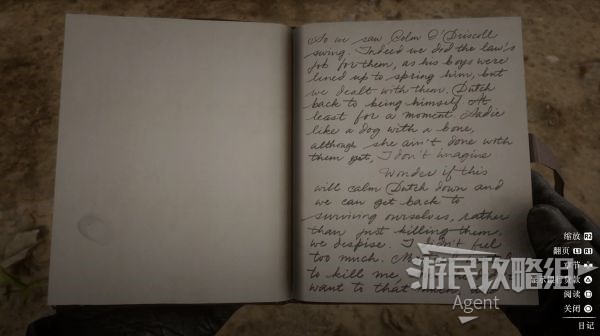 So we saw Colm O'Driscoll
swing. Indeed we did the law's
job for them, as his boys were
lined up to spring him, but
we dealt with them. Dutch
back to being himself. At
least for a moment. Sadie
like a dog with a bone,
although she ain't done with
them yet, I don't imagine
Wonder if this
will calm Dutch down and
we can get back to
surviving ourselves, rather
than just killing them,
we despise. I don't feel
too much.
to kill me,
want to that much
缩放 R2
翻页 L1 R1
阅读
关闭
日记
游民攻略组
Agent